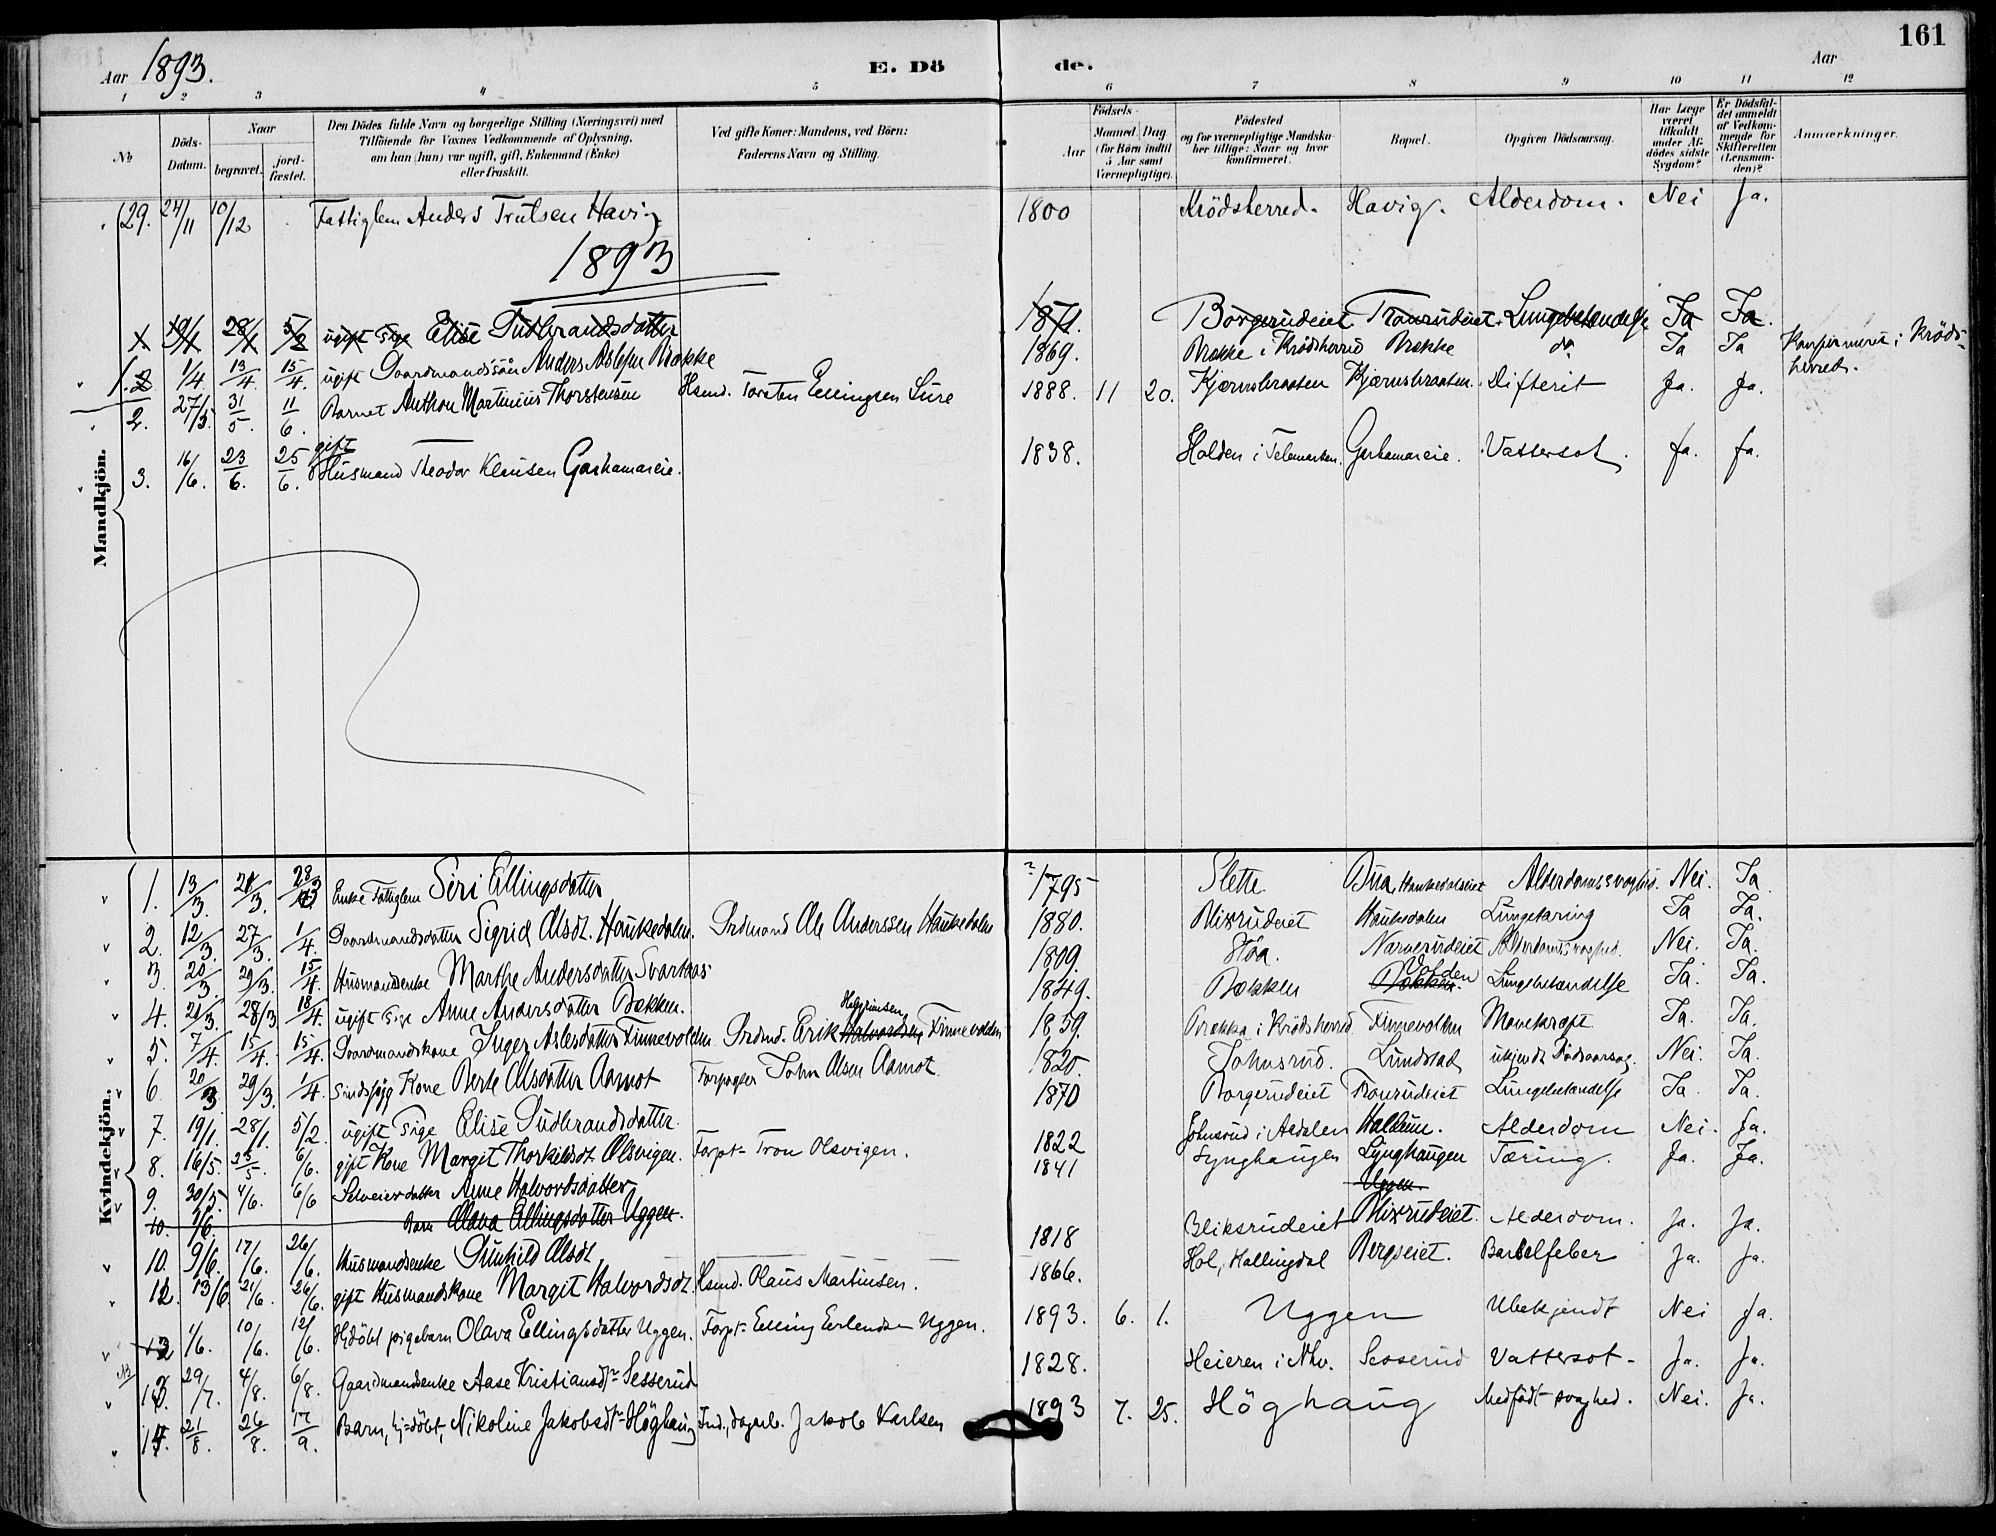 161
Aar 1893.
E. Dö de.
Aar
1 2 3 4 5 6 7 8 9 10 11 12
No
Döds-Datum.
Naar begravet. jordfæstet.
Den Dödes fulde Navn og borgerlige Stilling (Næringsvei) med Tilföiende for Voxnes Vedkommende af Oplysning, om han (hun) var ugift, gift, Enkemand (Enke) eller fraskilt.
Ved gifte Koner: Mandens, ved Börn: Faderens Navn og Stilling.
Födsels- Aar Maaned Dag (for Börn indtil 5 Aar samt Værnepligtige).
Födested og for værnepligtige Mandskaber tillige: Naar og hvor konfirmeret.
Bopæl.
Opgiven Dödsaarsag.
Har Læge været tilkaldt under Afdödes sidste Sygdom?
Er Dödsfaldet anmeldt af Vedkommende for Skifteretten (Lensmanden)?
Anmærkninger.
Mandkjön.
29. 24/11 10/12 Fattiglem Anders Trulsen Havig 1800 Krödsherred. Havig. Alderdom. Nei Ja.
1893
1. 19/1 28/1 5/2 ugift Pige Elise Gudbrandsdatter 1871. Borgerudeiet Tronrudeiet Lungebetændelse Ja Ja.
1. 1/4 13/4. 15/4. ugift Gaardmandssön Anders Aslesen Brække 1869. Brække i Krödsherred Brække do Ja Ja Konfirmeret i Krödsherred.
2. 27/5. 31/5. 11/6. Barnet Anthon Martinius Thorstensen Hsmd. Torsten Ellingsen Lure 1888. 11 20. Kjærnsbraaten Kjærnsbraaten. Difterit Ja. Ja.
3. 16/6. 23/6. 25/6. gift Husmand Theodor Klausen Garhamareie. 1838. Holden i Telemarken. Garhamareie. Vattersot. Ja. Ja.
Kvindekjön.
1. 13/3. 21/3. 28/3 Enke Fattiglem Siri Ellingsdatter 1795 Slette Bua, Haukedalseiet Alderdomssvaghed. Nei. Ja.
2. 12/3. 27/3. 1/4. Gaardmandsdatter Sigrid Olsdt. Haukedalen. Grdmand Ole Anderssen Haukedalen 1880. Blixrudeiet Haukedalen Lungetæring Ja Ja.
3. 20/3 29/3. 15/4. Husmandsenke Marthe Andersdatter Svartaas. 1809. Höa. Narverudeiet Alderdomssvaghed. Nei. Ja.
4. 21/3. 28/3 18/4. ugift Pige Anne Andersdatter Bækken. 1849. Bækken Bækken. Volden Lungebetændelse Ja. Ja.
5. 7/4. 15/4. 15/4. Gaardmandskone Inger Aslesdatter Finnevolden. Grdmd. Erik Halvordsen Helgrimsen Finnevolden 1859. Brække i Krödsherred Finnevolden Mavekræft Ja. Ja.
6. 20/3 29/3. 1/4. Sindssyg Kone Berte Olsdatter Aamot Forpagter John Olsen Aamot. 1820. Johnsrud. Lundstad ukjendt Dödsaarsag. Nei. Ja.
7. 19/1. 28/1. 5/2. ugift Pige Elise Gudbrandsdatter. 1870 Borgerudeiet Tronrudeiet Lungebetændelse Ja. Ja.
8. 16/5. 25/5. 6/6. gift Kone Margit Thorkildsdt. Olsvigen. Forpt. Tron Olsvigen. 1822 Johnsrud i Aadalen Hallum. Alderdom Nei. Ja.
9. 30/5. 4/6. 6/6 Selveierdatter Anne Halvorsdatter 1841 Lynghaugen Lynghaugen Tæring. Ja. Ja.
10. 1/6. Barn Olava Ellingsdatter Uggen. Uggen.
10. 9/6. 17/6. 26/6. Husmandsenke Gunhild Olsdt. 1818 Bliksrudeiet Blixrudeiet. Alderdom. Ja. Ja.
11. 13/6 21/6. 26/6. gift Husmandskone Margit Halvordsdt. Hsmd. Olaus Martinsen. 1866. Hol, Hallingdal Bergseiet. Barselfeber Ja. Ja.
12 1/6. 10/6. 12/6. Hjdöbt pigebarn Olava Ellingsdatter Uggen. Forpt. Elling Erlendsen Uggen. 1893. 6. 1. Uggen Ubekjendt Nei Ja.
NB 13. 29/7. 4/8. 6/8. Gaardmandsenke Aase Kristiansdtr Sesserud 1828. Heieren i Nhv. Sesserud Vattersot. Ja. Ja.
14. 21/8. 26/8. 17/9. Barn, hj=döbt, Nikoline Jakobsdtr Höghaug Ind., dagarb. Jakob Karlsen 1893 7. 25. Höghaug Medfödt svaghed. Nei. Ja.